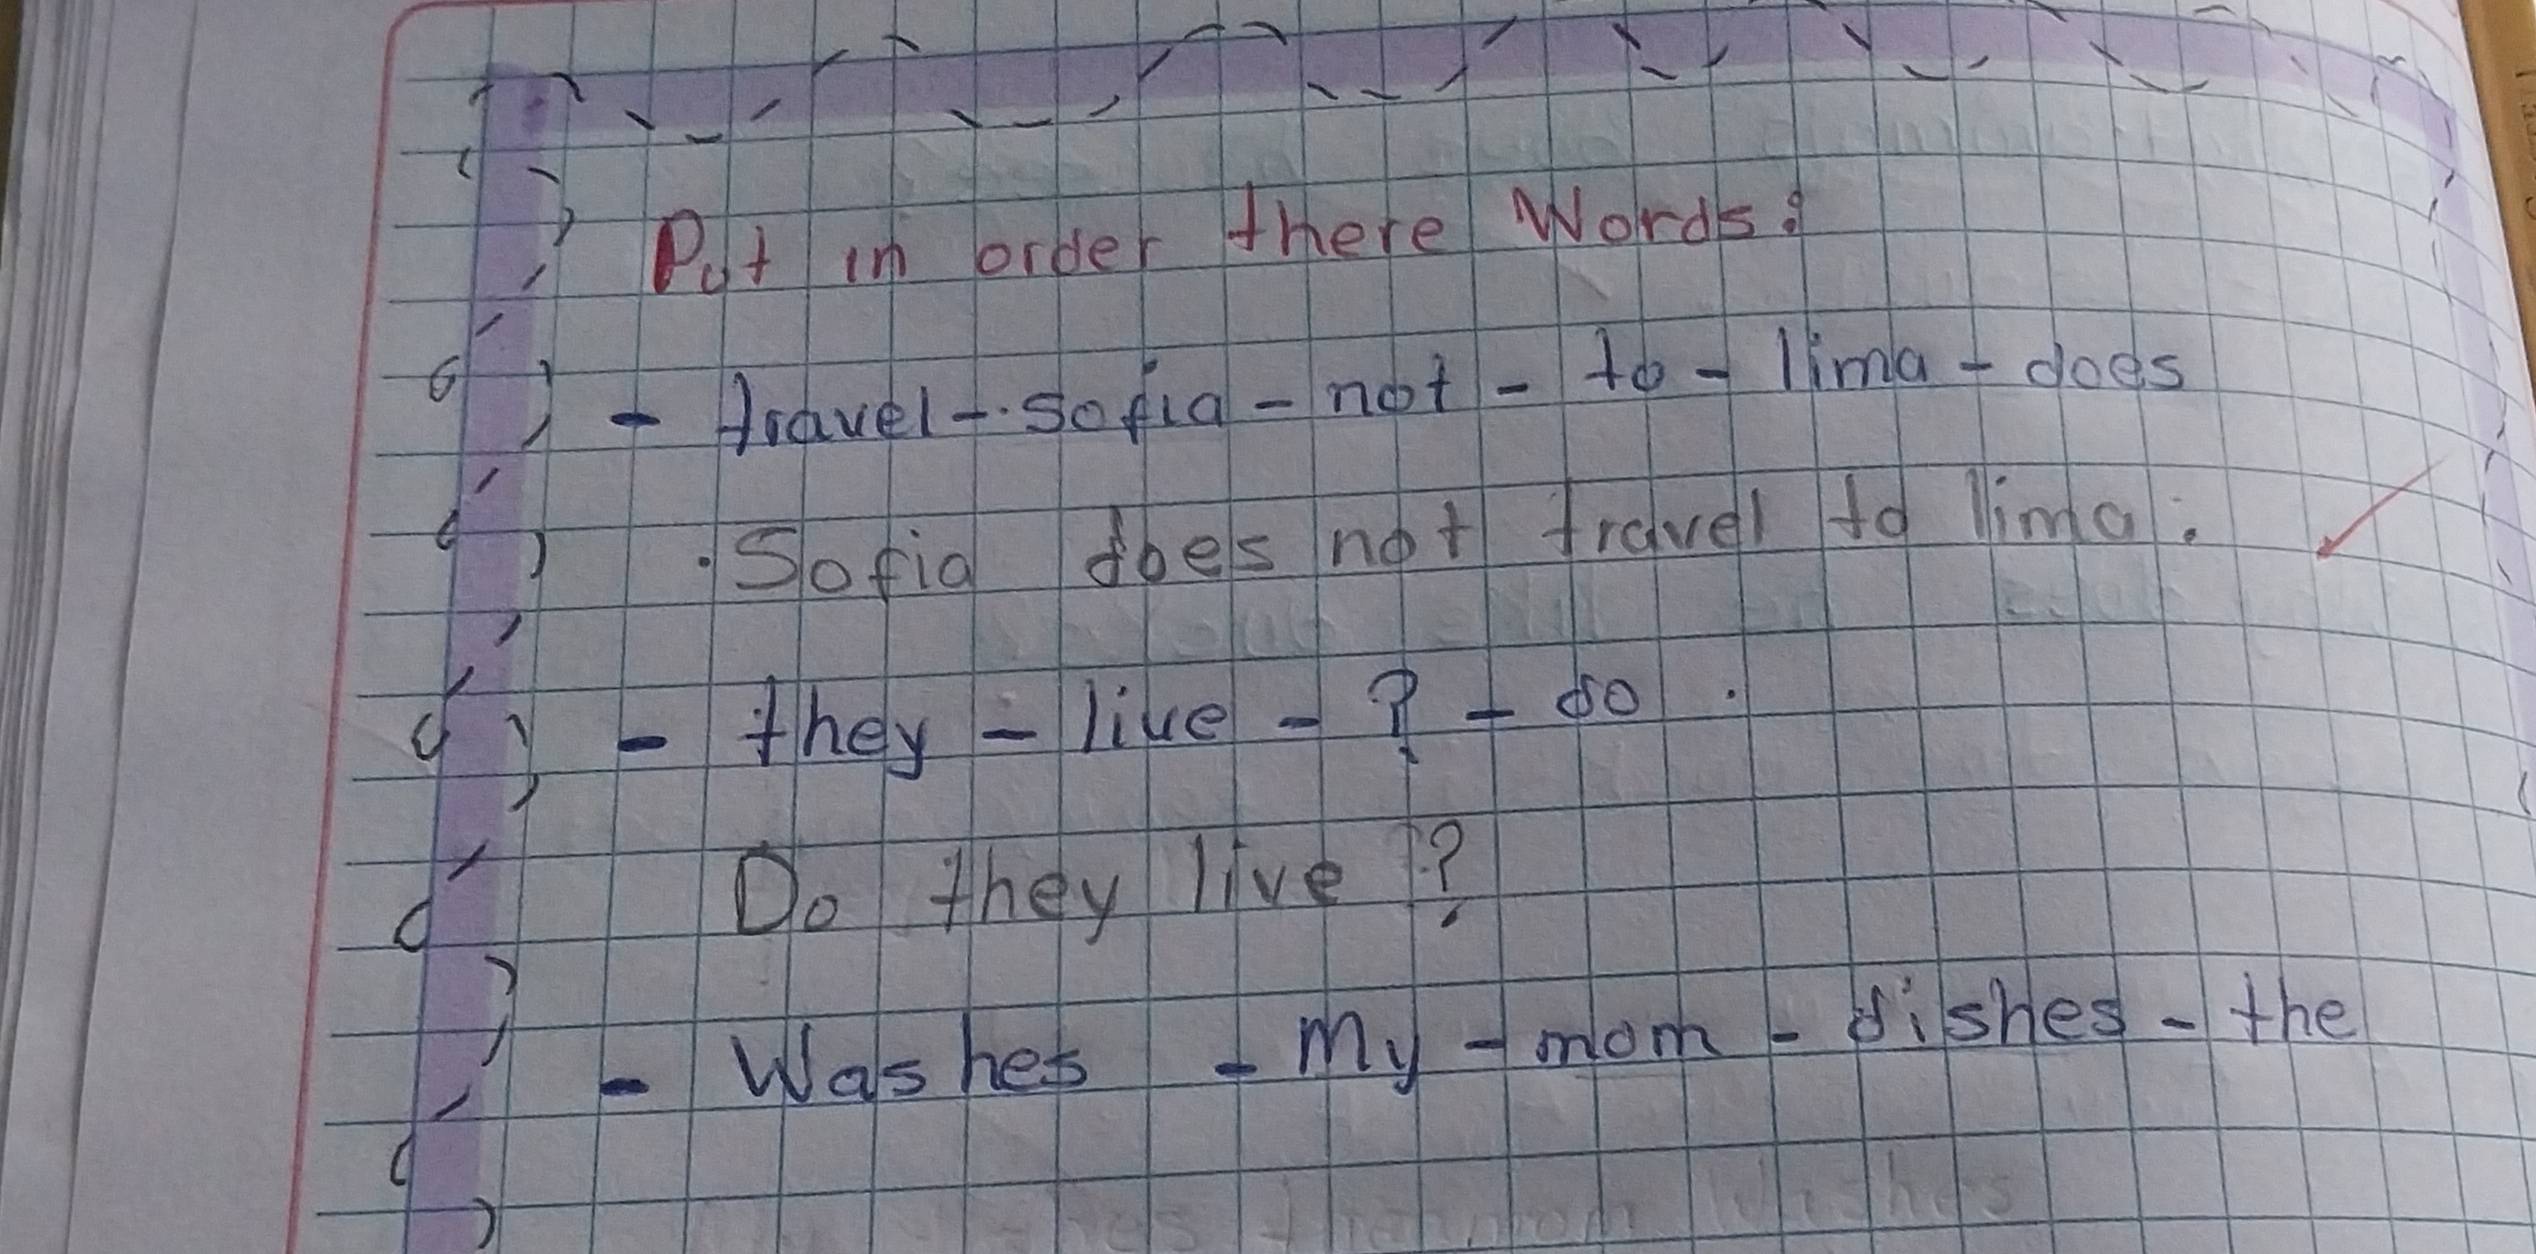 Put in order there Words:
- travel - sofia - not - to - lima - does
. Sofia does not travel to lima.
- they - live - ? - do .
Do they live ?
- Washes - My - mom - dishes - the